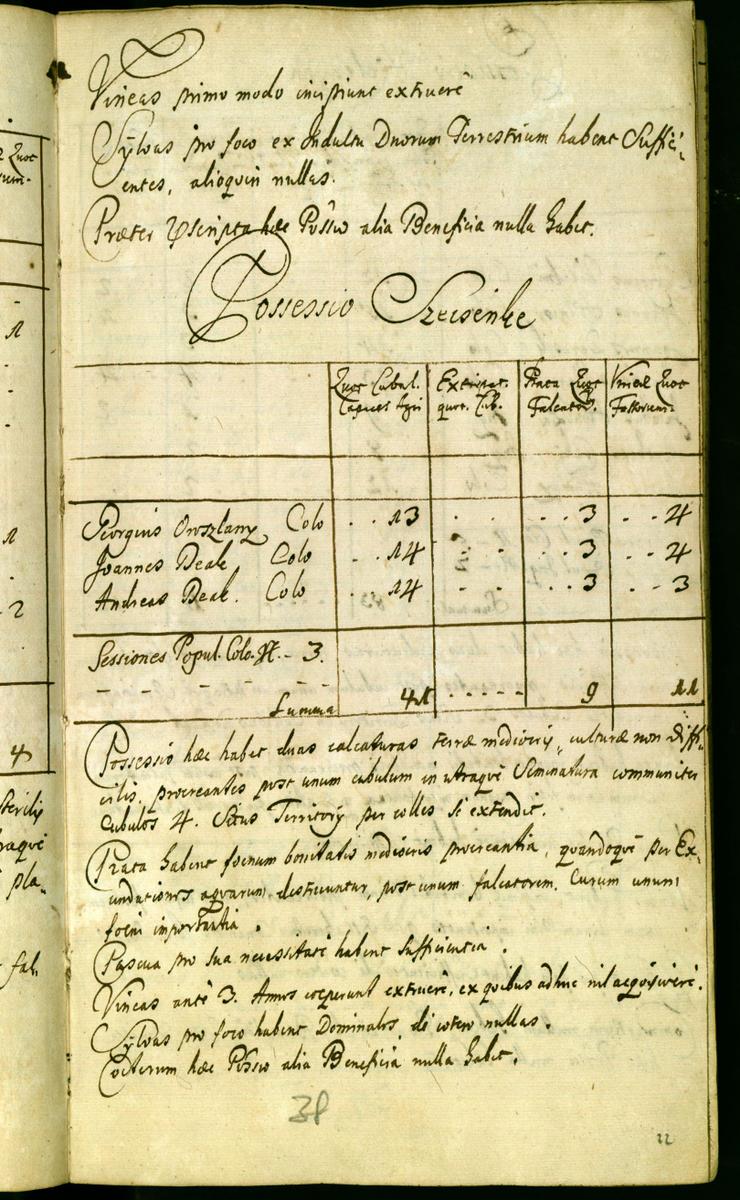 Vineas primo modo incipiunt extruere
Sÿlvas pro foco ex Indultu Dnorum Terrestrium habent Suffici-
entes, alioquin nullas.
Præter scripta hæc Posso alia Beneficia nulla habet.
Possessio Szecsénke
Quot Cubul. Capaces Agri
Extirpat. quot. Cub.
Prata Quot Falcator.
Vineæ Quot Fossorum
Georgius Oroszlany Colo . . 13 . . . . 3 . . 4
Joannes Deak Colo . . 14 . . 3 . . 4
Andreas Deak. Colo . . 14 . . 3 . . 3
Sessiones Popul. Colo. N. - 3.
Summa 41 - - - - - 9 11
Possessio hæc habet duas calcaturas terræ mediocris, culturæ non diffi-
cilis, procreantis post unum cubulum in utraque Seminatura communiter
Cubulos 4. Situs Territorÿ per colles se extendit.
Prata habent foenum bonitatis mediocris procreantia, quandoque per Ex-
undationes aquarum destruuntur, post unum falcatorem. Currum unum
foeni importantia.
Pascua pro sua necessitate habent sufficientia.
Vineas ante 3. Annos coeperunt extruere, ex quibus adhuc nil acquisivere.
Sÿlvas pro foco habent Dominales, de cetero nullas.
Coeterum hæc Posso alia Beneficia nulla habet.
38
22